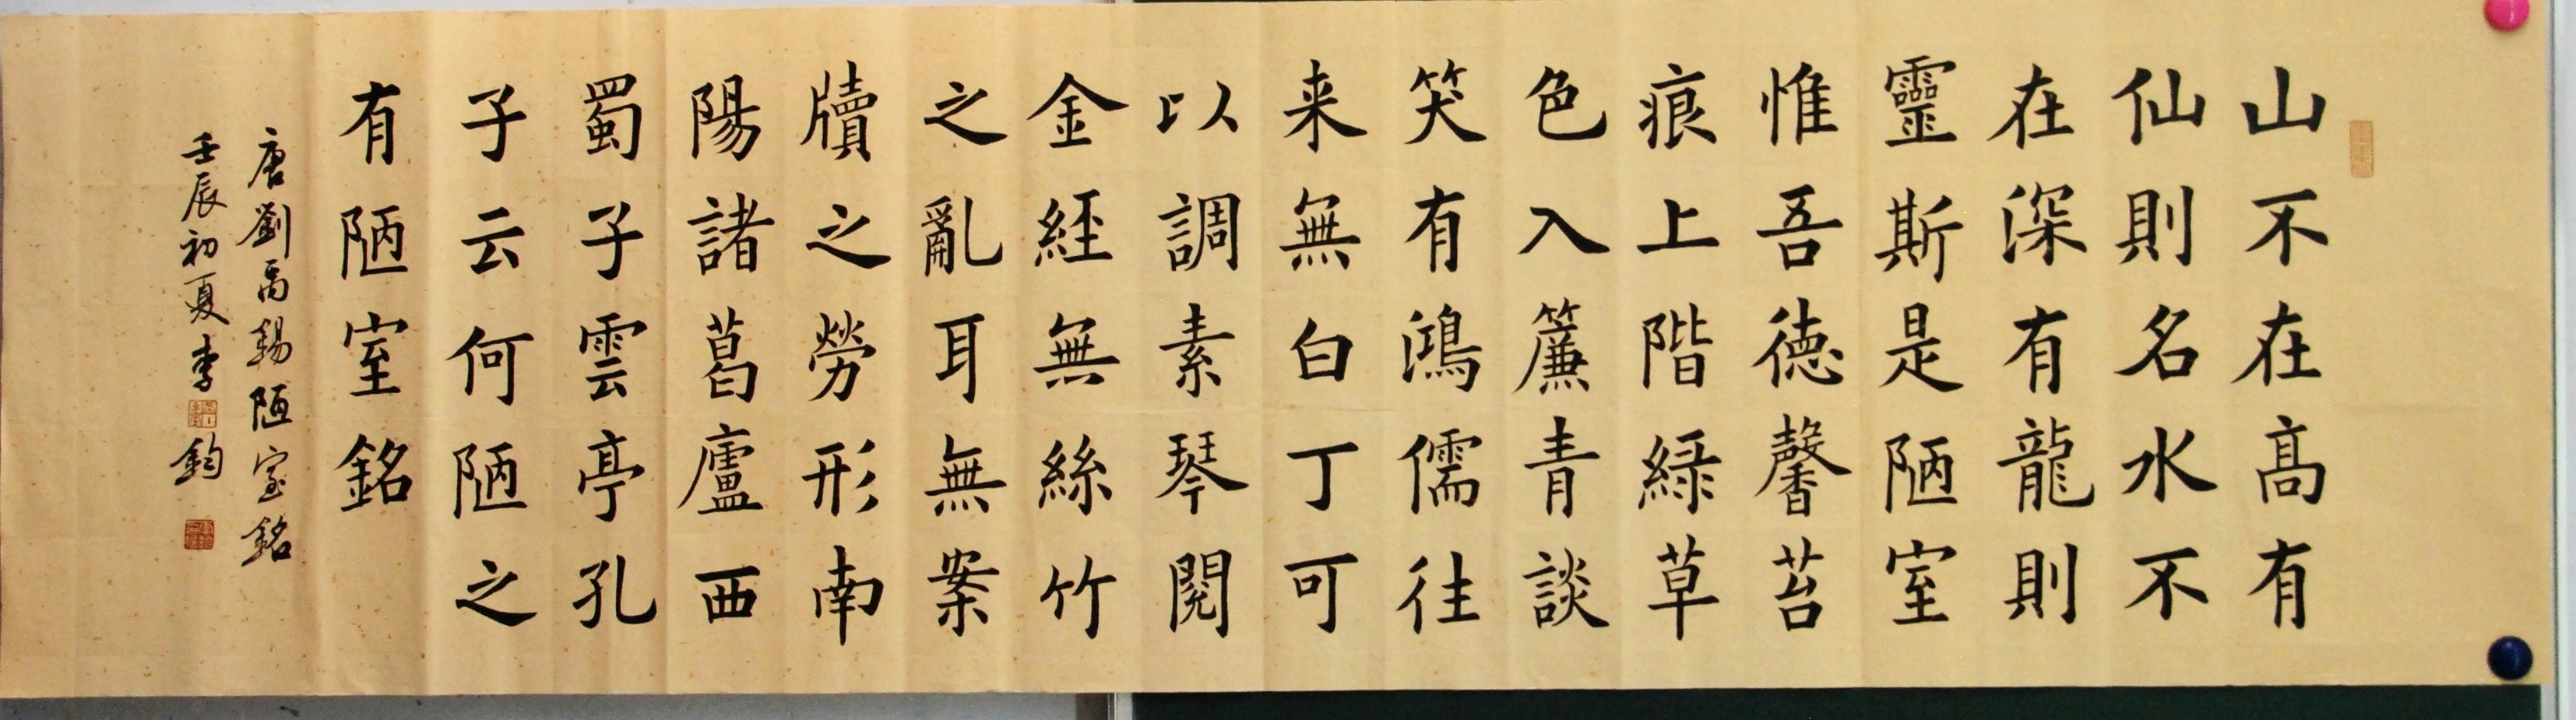 山不在高有
仙則名水不
在深有龍則
靈斯是陋室
惟吾德馨苔
痕上階綠草
色入簾青談
笑有鴻儒往
来無白丁可
以調素琴閱
金經無絲竹
之亂耳無案
牘之勞形南
陽諸葛廬西
蜀子雲亭孔
子云何陋之
有陋室銘
唐劉禹錫陋室銘
壬辰初夏李鈞